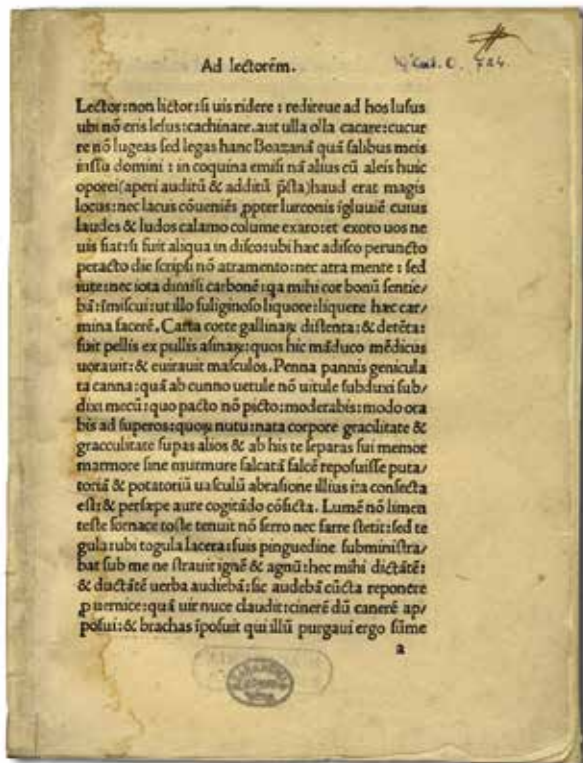 Ad lectorēm.
Lector:non lictor:si uis ridere : redireue ad hos lusus
ubi nō eris lesus:cachinare.aut ulla olla cacare:cucur
re nō lugeas sed legas hanc Boazanā quā salibus meis
iussu domini : in coquina emisi nā alius cū aleis huic
oporei(aperi auditū & additū p̄sta)haud erat magis
locus:nec lacus cōueniēs ꝓpter lurconis īgluuiē cuius
laudes & ludos calamo colume exaro:et exoro uos ne
uis fiat:si fuit aliqua in disco:ubi hæc adisco peruncto
peracto die scripsi nō atramento:nec atra mente : sed
iure:nec iota dimisi carbonē:qa mihi cor boniū sentie/
bā:īmiscui:ut illo fuliginoso liquore:liquere hæc car/
mina facerē.Carta corte gallinaꝝ distenta:& detēta:
fuit pellis ex pullis asinaꝝ:quos hic māduco mēdicus
uorauit:& euirauit masculos.Penna pannis genicula
ta canna:quā ab cunno uetule nō uitule subduxi sub/
dixi mecū:quo pacto nō picto:moderabis:modo ora
bis ad superos:quoꝝ nutu:nata corpore gracilitate &
gracculitate supas alios & ab his te separas sui memor
marmore sine murmure falcatā falcē reposuisse puta/
toriā & potatoriū uasculū abrasione illius ita confecta
est:& persæpe aure cogitādo cōficta. Lumē nō limen
teste fornace toste tenuit nō ferro nec farre stetit:sed te
gula:ubi togula lacera:suis pinguedine subministra/
bat sub me ne strauit ignē & agnū:hec mihi dictātē:
& ductātē uerba audiebā:sic audebā cūcta reponere
ꝓ uernice:quā uir nuce claudit:cinerē dū canerē ap/
posui:& brachas īposuit qui illū purgaui ergo sūme
a